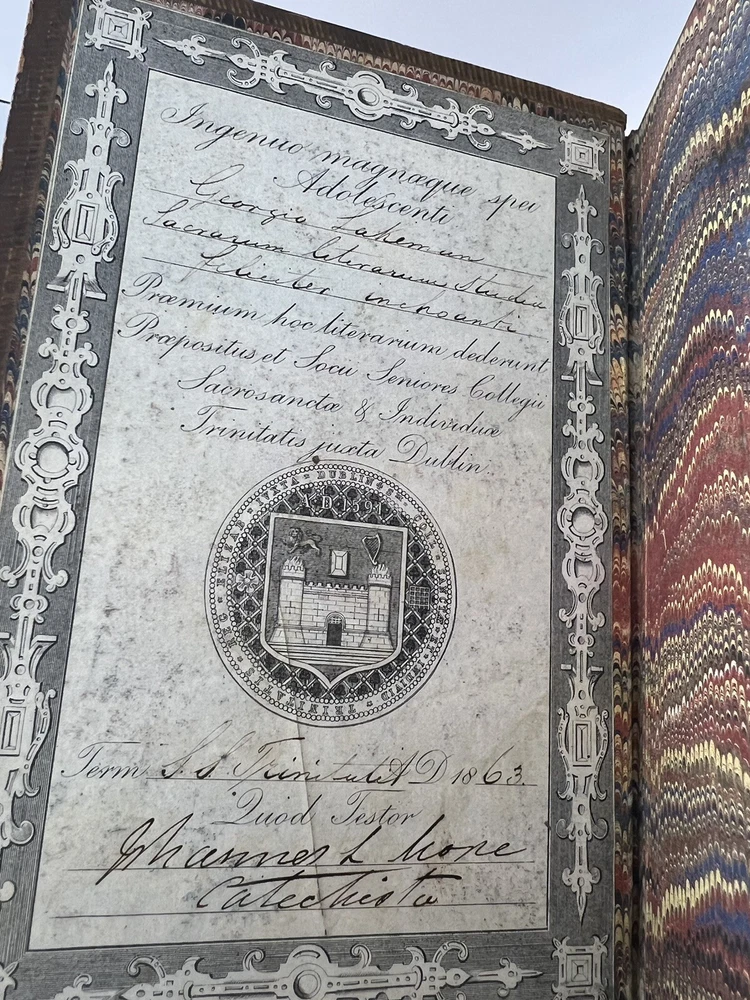 Ingenuo magnæque spei
Adolescenti
Georgio
Sacrarum literarum Studiis
feliciter inchoanti
Præmium hoc literarium dederunt
Præpositus et Socii Seniores Collegii
Sacrosanctæ & Individuæ
Trinitatis juxta Dublin.
A D 1591
REG ELIZAB
TRINITAT
Term. S. S. Trinitatis A D 1863.
Quod Testor
Johannes L
Catechista